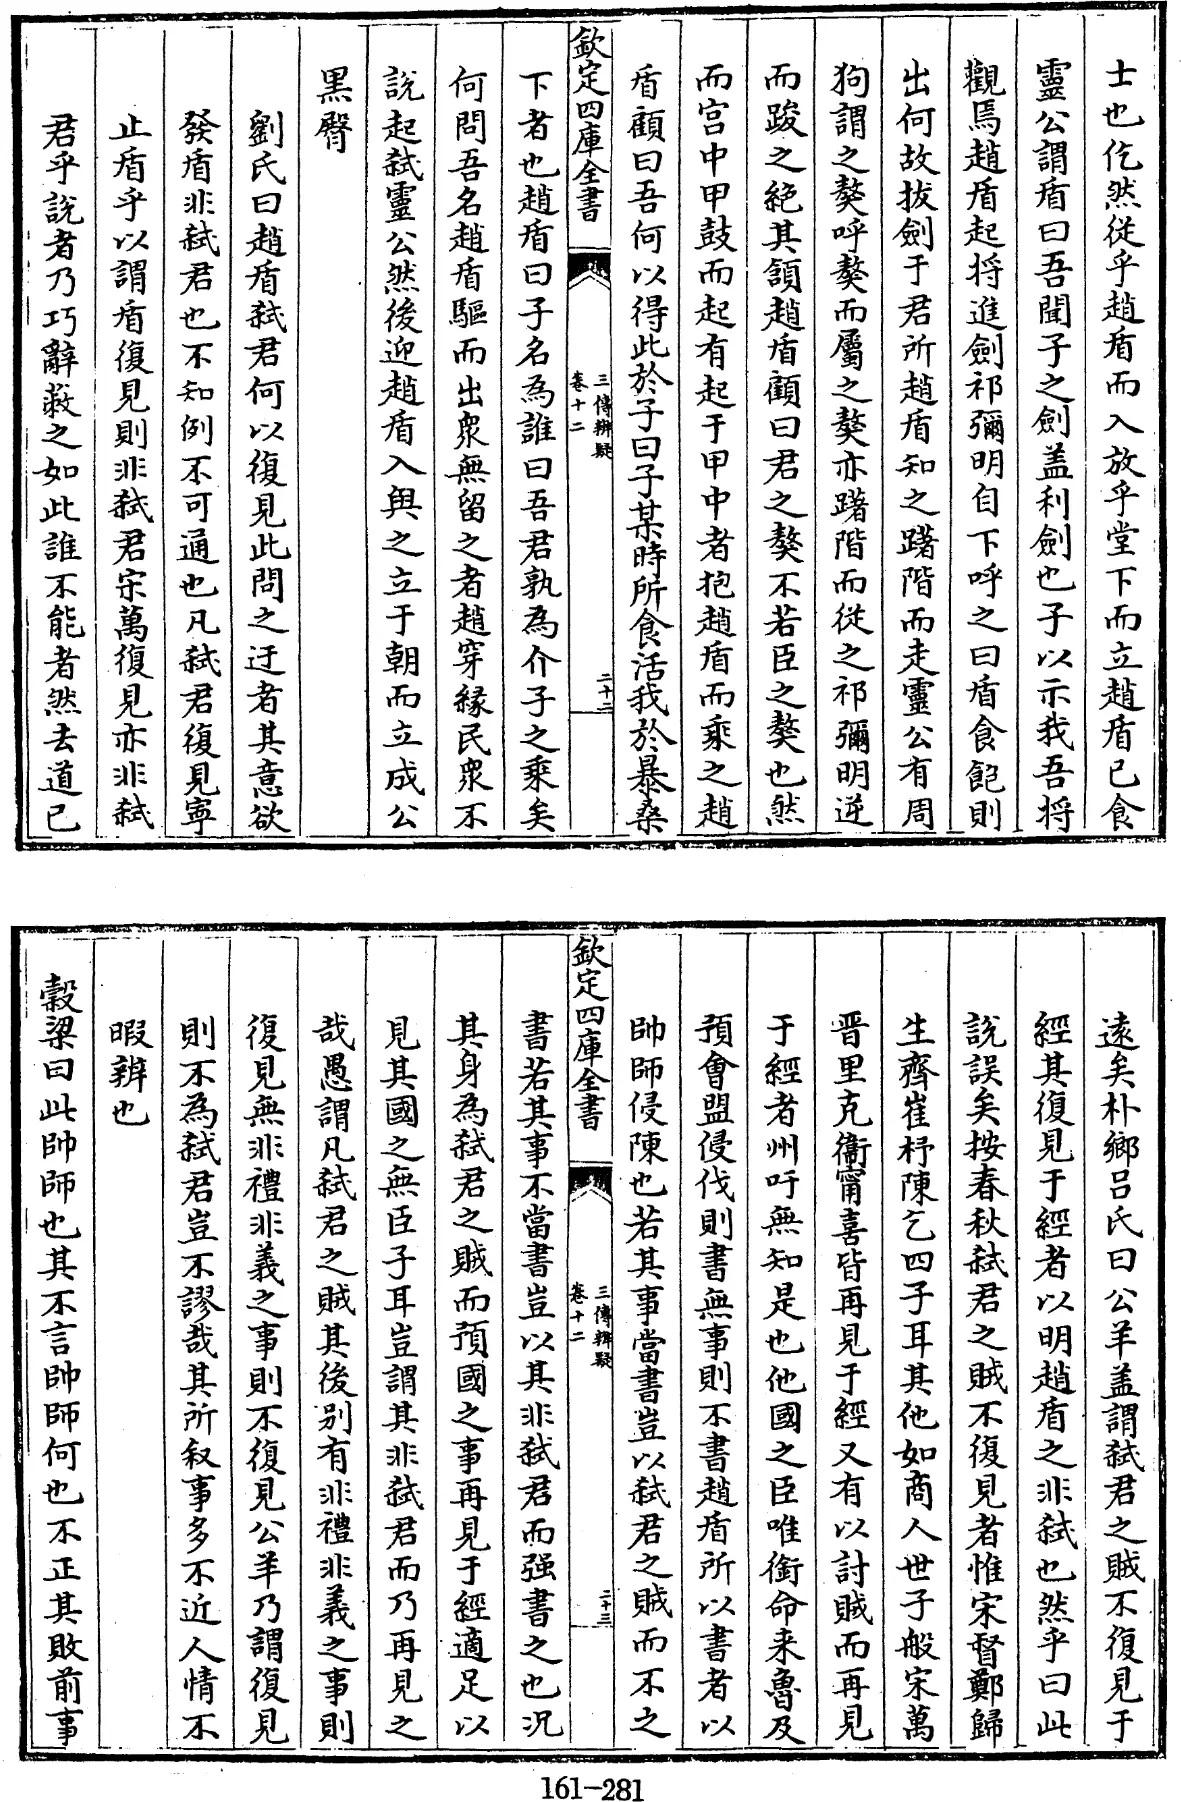 士也仡然從乎趙盾而入放乎堂下而立趙盾已食
靈公謂盾曰吾聞子之劍盖利劍也子以示我吾将
觀焉趙盾起将進劍祁彌明自下呼之曰盾食飽則
出何故拔劍于君所趙盾知之躇階而走靈公有周
狗謂之獒呼獒而屬之獒亦躇階而從之祁彌明逆
而踆之絶其頷趙盾顧曰君之獒不若臣之獒也然
而宫中甲鼓而起有起于甲中者抱趙盾而乘之趙
盾顧曰吾何以得此於子曰子某時所食活我於暴桑
欽定四庫全書
三傳辨疑
卷十二
二十二
下者也趙盾曰子名為誰曰吾君孰為介子之乘矣
何問吾名趙盾驅而出衆無留之者趙穿緣民衆不
說起弑靈公然後迎趙盾入與之立于朝而立成公
黑臀
劉氏曰趙盾弑君何以復見此問之迂者其意欲
發盾非弑君也不知例不可通也凡弑君復見寧
止盾乎以謂盾復見則非弑君宋萬復見亦非弑
君乎說者乃巧辭蔽之如此誰不能者然去道已
遠矣朴鄉吕氏曰公羊盖謂弑君之賊不復見于
經其復見于經者以明趙盾之非弑也然乎曰此
說誤矣按春秋弑君之賊不復見者惟宋督鄭歸
生齊崔杼陳乞四子耳其他如商人世子般宋萬
晋里克衞甯喜皆再見于經又有以討賊而再見
于經者州吁無知是也他國之臣唯銜命来魯及
預會盟侵伐則書無事則不書趙盾所以書者以
帥師侵陳也若其事當書豈以弑君之賊而不之
欽定四庫全書
三傳辨疑
卷十二
二十三
書若其事不當書豈以其非弑君而强書之也况
其身為弑君之賊而預國之事再見于經適足以
見其國之無臣子耳豈謂其非弑君而乃再見之
哉愚謂凡弑君之賊其後别有非禮非義之事則
復見無非禮非義之事則不復見公羊乃謂復見
則不為弑君豈不謬哉其所叙事多不近人情不
暇辨也
穀梁曰此帥師也其不言帥師何也不正其敗前事
161-281